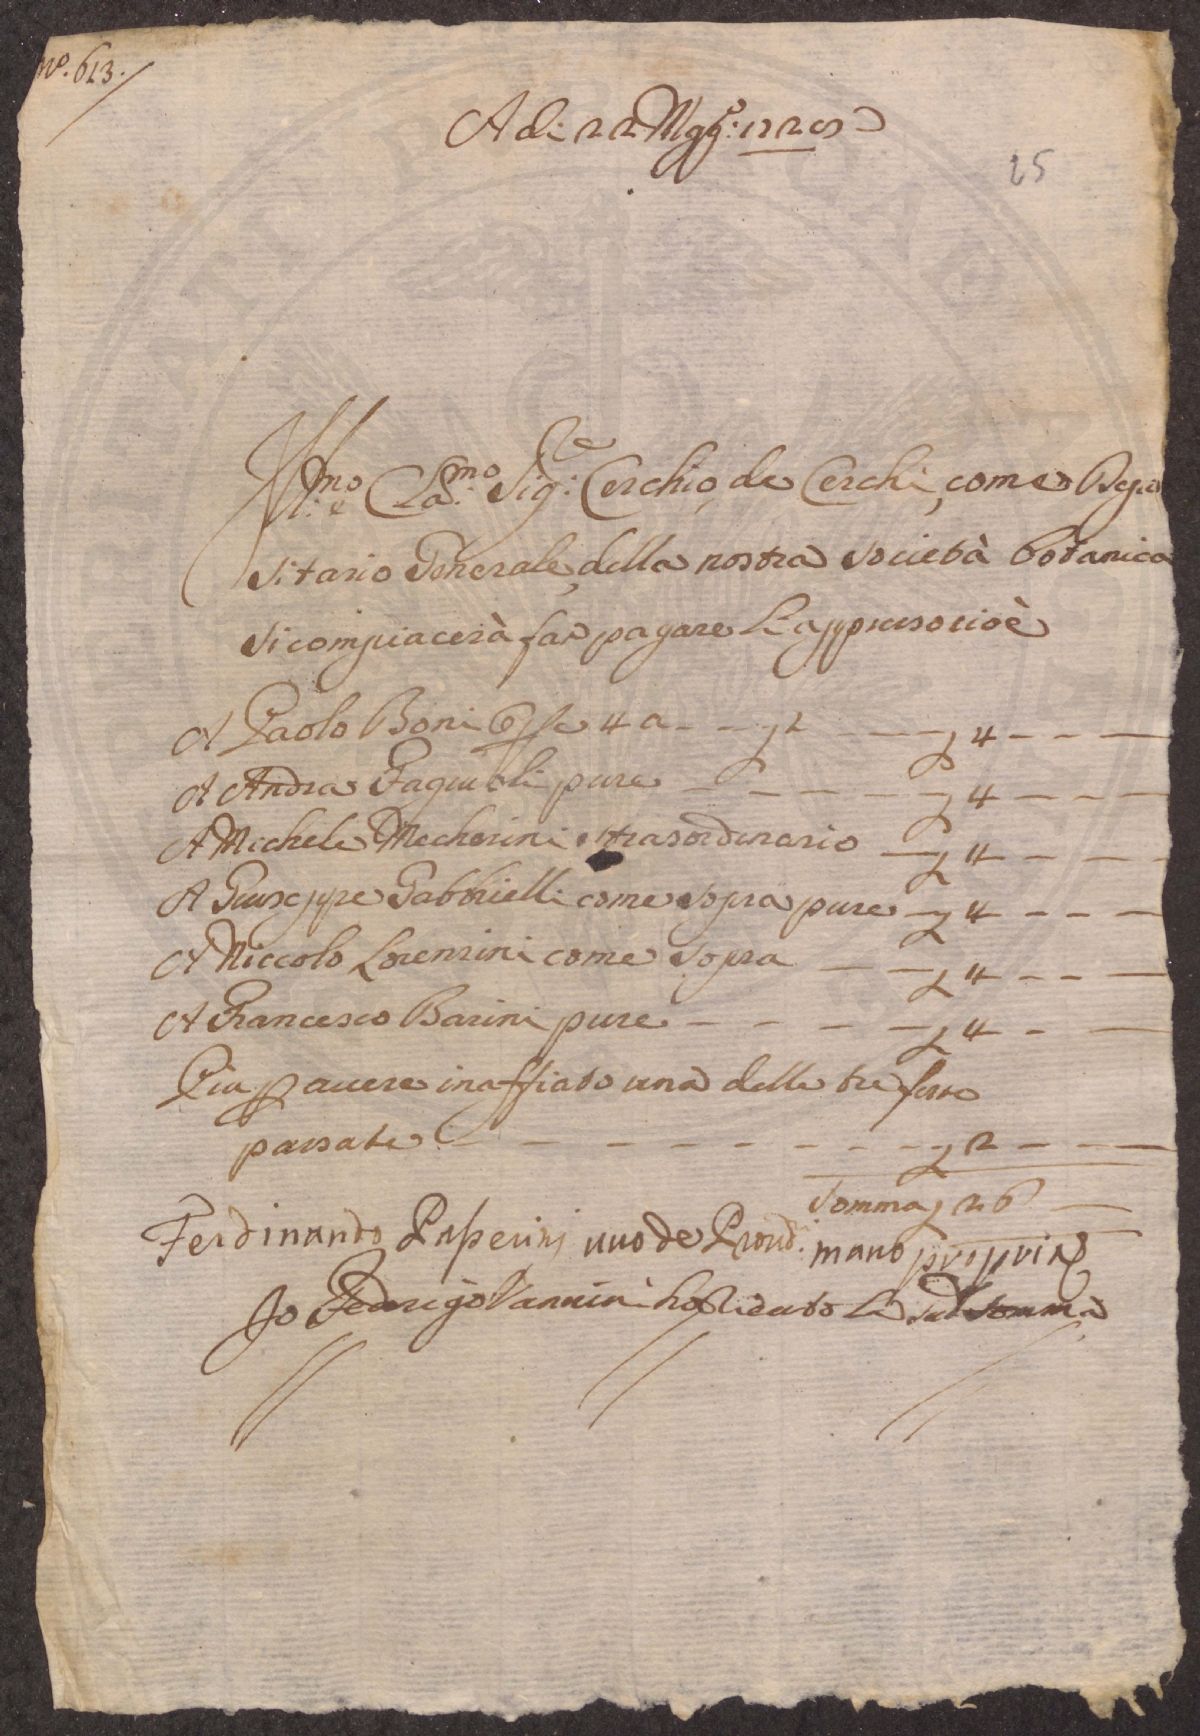 Nº. 613.
Adi 22 Magg.º: 172
25
Ill.mo e Cla.mo Sig.re Cerchio de Cerchi, come Depo
sitario Generale, della nostra Società botanica
si compiacerà far pagare li appresso cioè
A Paolo Boni Op.e 4 a - - £ 1 - - £ 4 - - -
A Andrea Fagiuoli pure - - - - - £ 4 - - -
A Michele Mecherini straordinario - £ 4 - - -
A Giuseppe Gabbrielli come sopra pure - £ 4 - - -
A Niccolo Lorenzini come sopra - - £ 4 - - -
A Francesco Barini pure - - - - - £ 4 - -
Piu p avere inaffiato una delle tre feste
passate - - - - - - - - £ 2 - -
Somma £ 26 -
Ferdinando Paperini uno de Proud.i mano propria
Io Federigo Vannini ho riceuto la sud somma